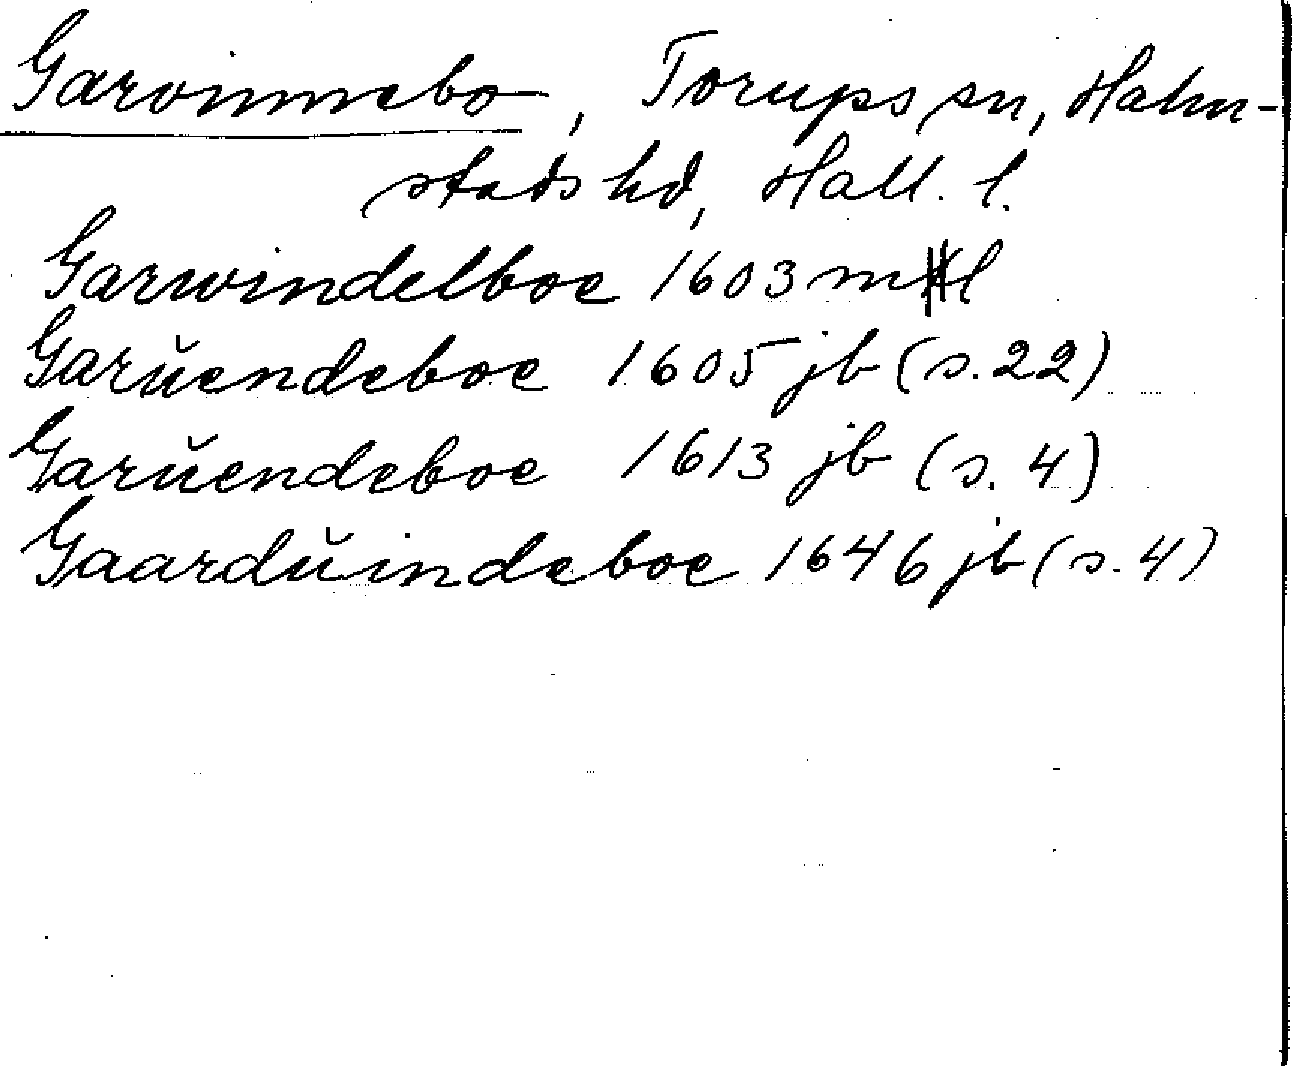 Garvinnebo, Torups sn, Halm-
stads hd, Hall. l.
Garwindelboe 1603 ml
Garŭendeboe 1605 jb (s. 22)
Garŭendeboe 1613 jb (s. 4)
Gaardŭindeboe 1646 jb (s. 4)